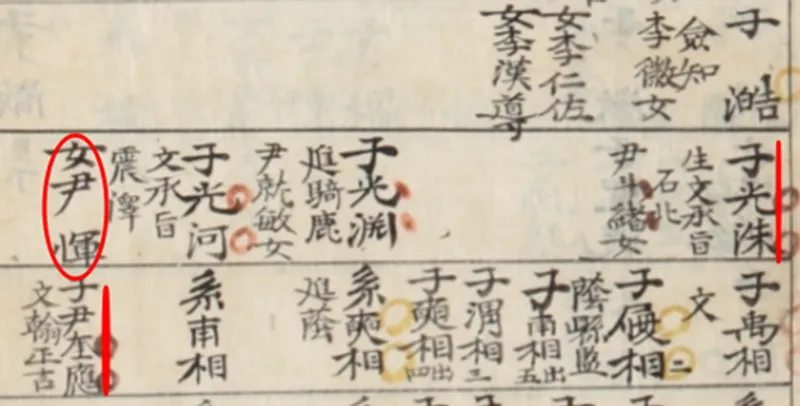 子 澔
僉知
李徽女
女李仁佐
女李漢道
子光洙
生文承旨
石北
尹斗緖女
子光淵
進騎鹿
尹就敏女
子光河
文承旨
震澤
女尹愇
子禹相
文
子偄相二
蔭縣監
子甬相出五
子渭相三
子奭相出四
系奭相
進蔭
系甬相
子尹在應
文翰正言